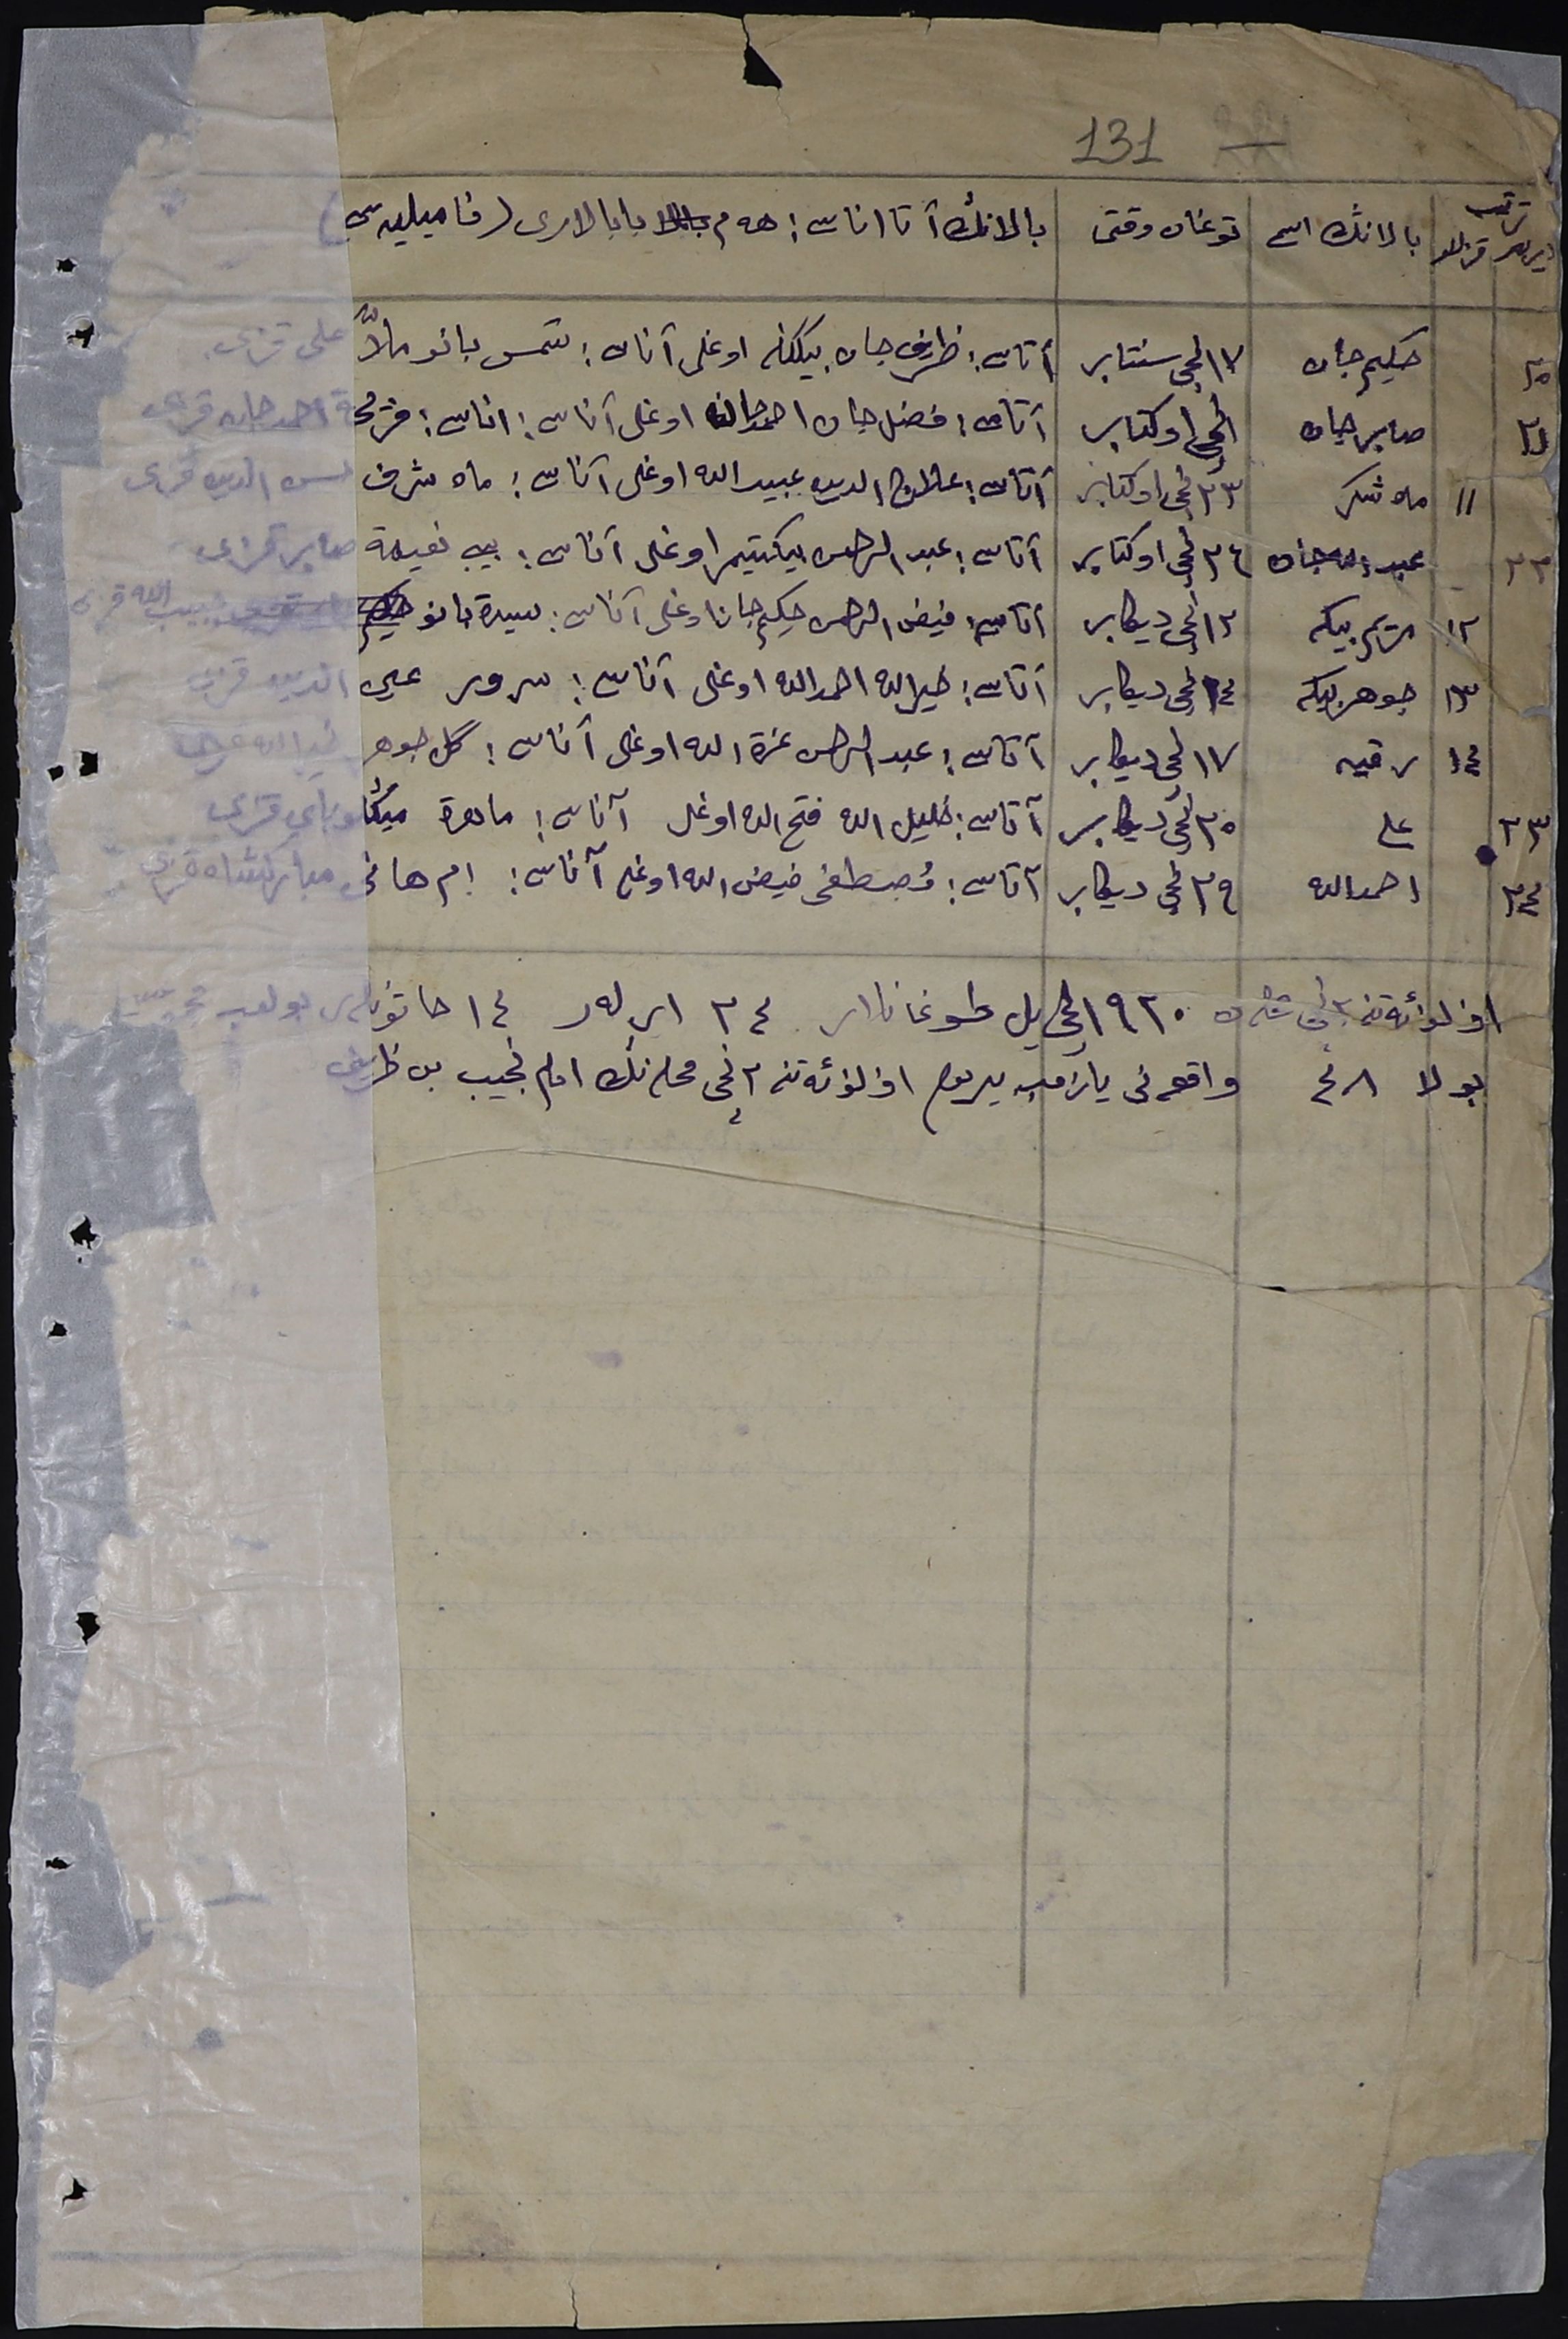 131
ترتیب
ایرلر قزلر بالانڭ اسمی توغان وقتی بالانڭ آتا اناسی؛ هم بابالاری (فامیلیه سی)
٢٠ حکیم جان ١٧نچی سنتابر آتاسی؛ ظریف جان بیککنه اوغلی آناسی؛ شمس بانو ملا علی قزی
٢١ صابر جان نچی اوکتابر آتاسی؛ فضل جان احمدجان اوغلی آناسی؛ اناسی؛ فرحة احمد جان قزی
١١ ماه شکر ٢٣نچی اوکتابر آتاسی؛ الدین عبید الله اوغلی آناسی؛ ماه شرف شمس الدین قزی
٢٢ عبد الله جان ٢٤نچی اوکتابر آتاسی؛ عبد الرحمن بیکتیمر اوغلی آناسی؛ بیبی نفیسة صابر قزی
١٢ مریم بیکه ١٢نچی دیکابر آتاسی؛ فیض الرحمن حکیم جان اوغلی آناسی؛ سیدة بانو حبیب الله قزی
١٣ جوهر بیکه ١٤نچی دیکابر آتاسی؛ خیر الله احمد الله اوغلی آناسی؛ سرور عینی الدین قزی
١٤ رقیه ١٧نچی دیکابر آتاسی؛ عبد الرحمن عزة الله اوغلی آناسی؛ گل جوهر
٢٣ علی ٢٥نچی دیکابر آتاسی؛ خلیل الله فتح الله اوغلی آناسی؛ ماهرة میڭلوبای قزی
٢٤ احمد الله ٢٩نچی دیکابر آتاسی؛ مصطفی فیض الله اوغلی آناسی؛ ام هانی مبارکشاه قزی
١٩٢٠نچی یل طوغانلار ٢٤ ایرلر ١٤ خاتونلر بولوب
بولا ٣٨ واقعه نی یازمپ بیردم ٢نچی محله نڭ امام نجیب بن ظریف